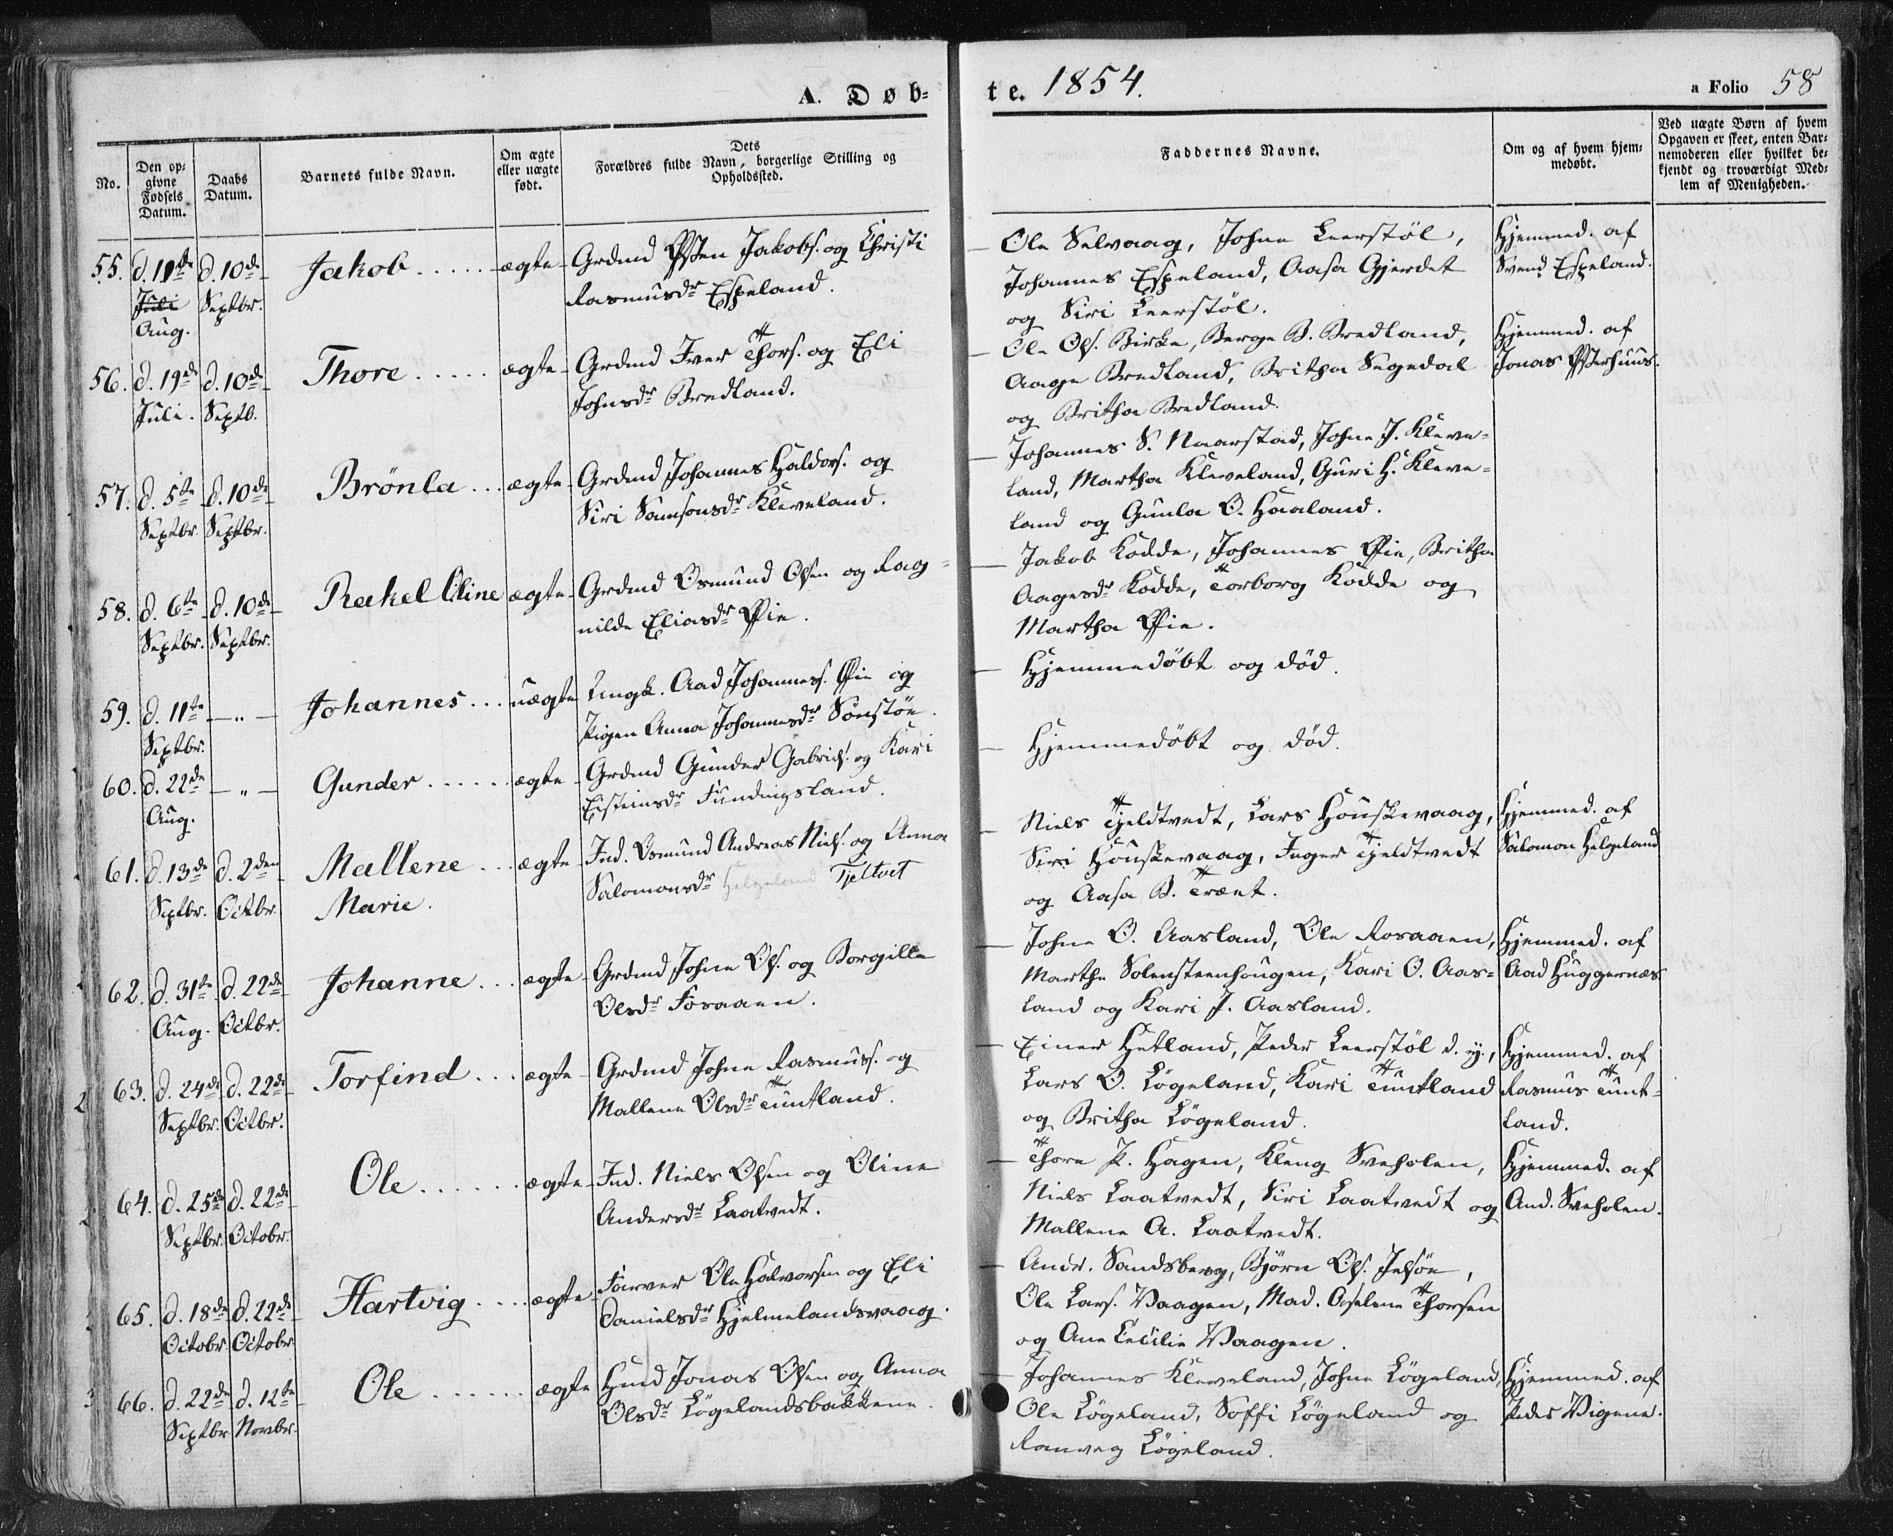 A. Døb-
te. 1854.
a Folio 58
No.
Den op-
givne
Fødsels
Datum.
Daabs
Datum.
Barnets fulde Navn.
Om ægte
eller uægte
født.
Dets
Forældres fulde Navn, borgerlige Stilling og
Opholdssted.
Faddernes Navne.
Om og af hvem hjem-
medøbt.
Ved uægte Børn af hvem
Opgaven er skeet, enten Bar-
nemoderen eller hvilket be-
kjendt og troværdigt Med-
lem af Menigheden.
55. d. 11te Juli Aug.
d. 10de Septbr.
Jakob ..... ægte
Grdmd Østen Jakobs. og Christi
Rasmusdr Espeland.
Ole Selvaag, Johne Leerstøl,
Johannes Espeland, Aasa Gjerdet
og Siri Leerstøl.
Hjemmed. af
Svend Espeland.
56. d. 19de Juli.
d. 10de Septb.
Thore ..... ægte
Grdmd Iver Thors. og Eli
Johnsdr Bredland.
Ole Ols. Birke, Berge B. Bredland,
Aage Bredland, Britha Segedal
og Britha Bredland.
Hjemmed. af
Jonas Østerhuus.
57. d. 5te Septbr.
d. 10de Septbr.
Brönla ... ægte
Grdmd Johannes Haldors. og
Siri Samsonsdr Kleveland.
Johannes S. Naarstad, Johne J. Kleve-
land, Martha Kleveland, Guri H. Kleve-
land og Gunla O. Haaland.
58. d. 6te Septbr.
d. 10de Septbr.
Rakel Eline ægte
Grdmd Osmund Olsen og Rag-
nilde Eliasdr Øie.
Jakob Kodde, Johannes Øie, Britha
Aagesdr Kodde, Torborg Kodde og
Martha Øie.
59. d. 11te Septbr.
— „ —
Johannes ... uægte
Ungk. Aad Johanness. Øie og
Pigen Anna Johannesdr Sønstøe.
Hjemmedøbt og død.
60. d. 22de Aug.
— „ —
Gunder ...... ægte
Grdmd Gunder Gabriels. og Kari
Eisteinsdr Fundingsland.
Hjemmedøbt og død.
61. d. 13de Septbr.
d. 2den Octbr.
Mallene ... ægte
Marie.
Ind. Osmund Andreas Niels. og Anna
Salomonsdr Helgeland Tjeltvet
Niels Tjeldtvedt, Lars Houskevaag,
Siri Houskevaag, Inger Tjeldtvedt
og Aasa B. Træet.
Hjemmed. af
Salomon Helgeland
62. d. 31te Aug.
d. 22de Octbr.
Johanne ... ægte
Grdmd Johne Ols. og Borgille
Olsdr Foraaen.
Johne O. Aasland, Ole Roraaen,
Marthe Solensteenhougen, Kari O. Aas-
land og Kari J. Aasland.
Hjemmed. af
Aad Huggernæs
63. d. 24de Septbr.
d. 22de Octbr.
Torfind ... ægte
Grdmd Johne Rasmuss. og
Mallene Olsdr Tuntland.
Einer Hetland, Peder Leerstøl d. y.,
Lars O. Løgeland, Kari Tuntland
og Britha Løgeland.
Hjemmed. af
Rasmus Tunt-
land.
64. d. 25de Septbr.
d. 22de Octobr.
Ole ...... ægte
Ind. Niels Olsen og Oline
Andersdr Laatvedt.
Thore P. Hagen, Kleng Sveholen,
Niels Laatvedt, Siri Laatvedt og
Mallene A. Laatvedt.
Hjemmed. af
And. Sveholen.
65. d. 18de Octobr.
d. 22de Octobr.
Hartvig .... ægte
Farver Ole Halvorsen og Eli
Danielsdr Hjelmelandsvaag.
Andr. Sandsberg, Bjørn Ols. Jelsøe,
Ole Lars. Vaagen, Mad. Aselene Thorsen
og Ane Cecilie Vaagen.
66. d. 22de Septbr
d. 12te Novbr.
Ole ...... ægte
Hmd Jonas Olsen og Anna
Olsdr Løgelandsbakkene.
Johannes Kleveland, Johne Løgeland,
Ole Løgeland, Soffi Løgeland og
Ranveg Løgeland.
Hjemmed. af
Peder Vigene.